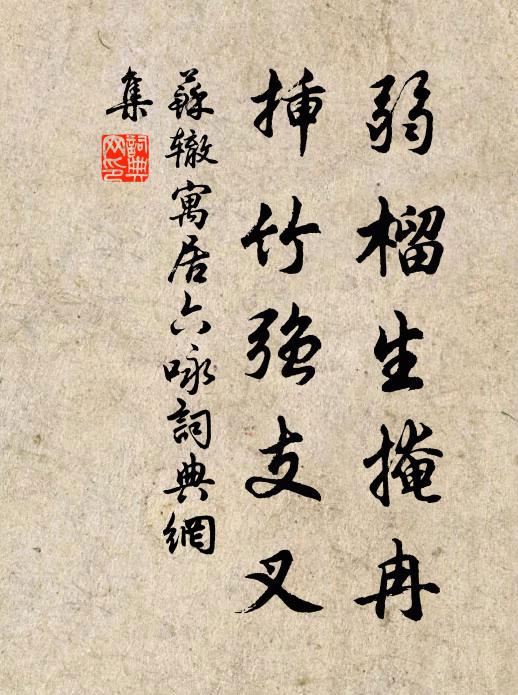 弱榴生掩冉
插竹強支叉
蘇轍寓居六咏詞典網
集
詞典網印